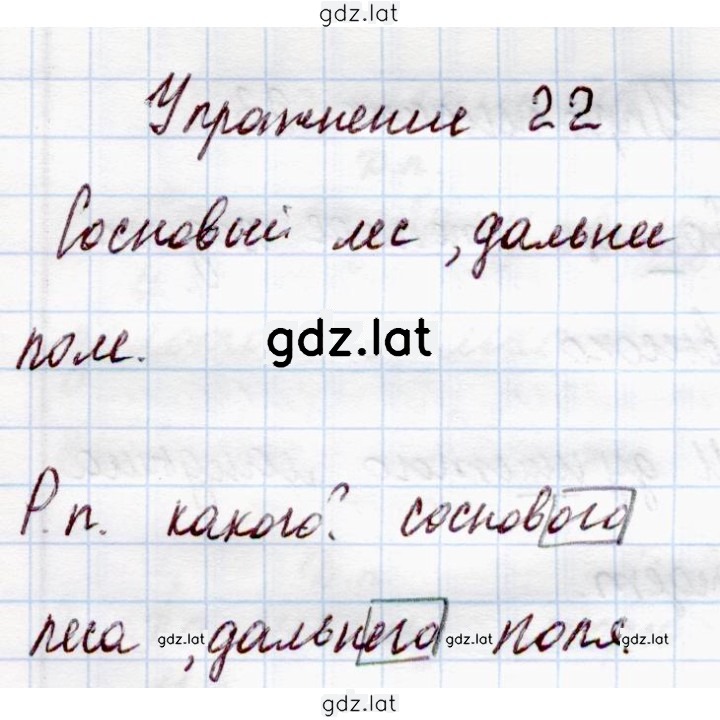 gdz.lat
Упражнение 22
Сосновый лес, дальнее
поле.
gdz.lat
Р.п. какого? соснового
леса, дальнего поля.
gdz.lat gdz.lat gdz.lat
gdz.lat